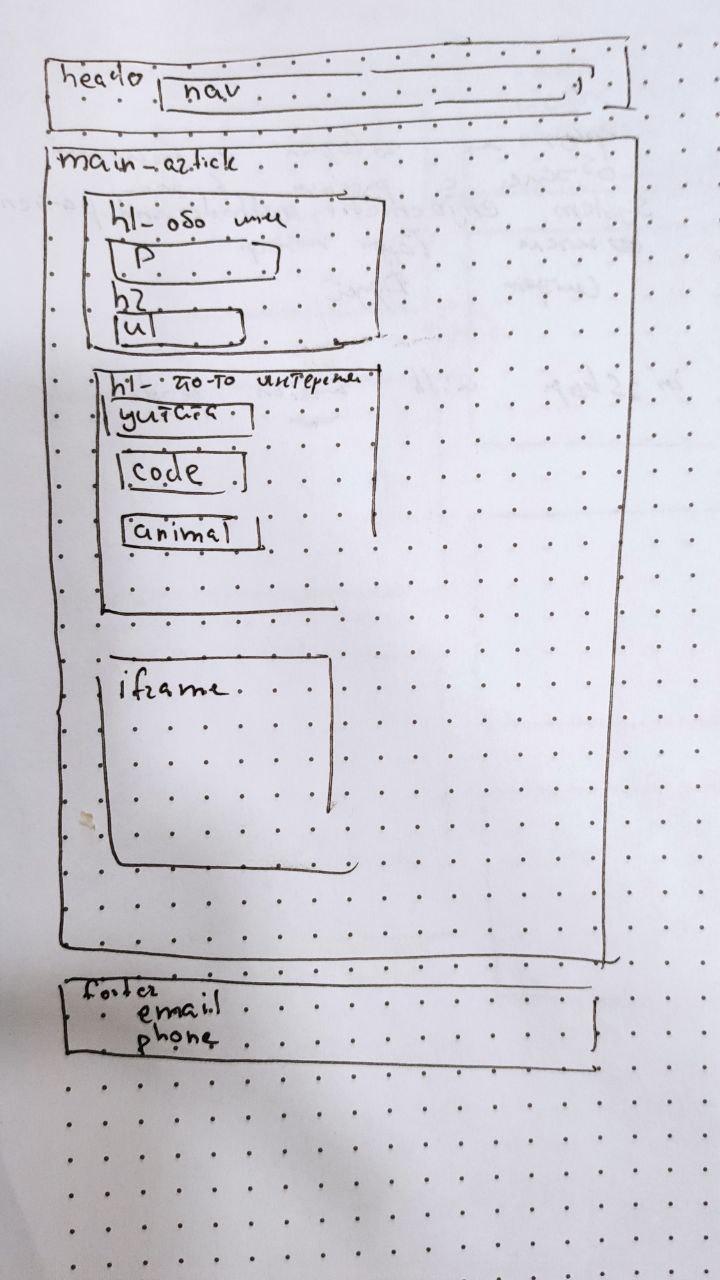 header
nav
main_article
h1- обо мне
p
h2
ul
h1- что-то интересное
цитата
code
animal
iframe
footer
email
phone